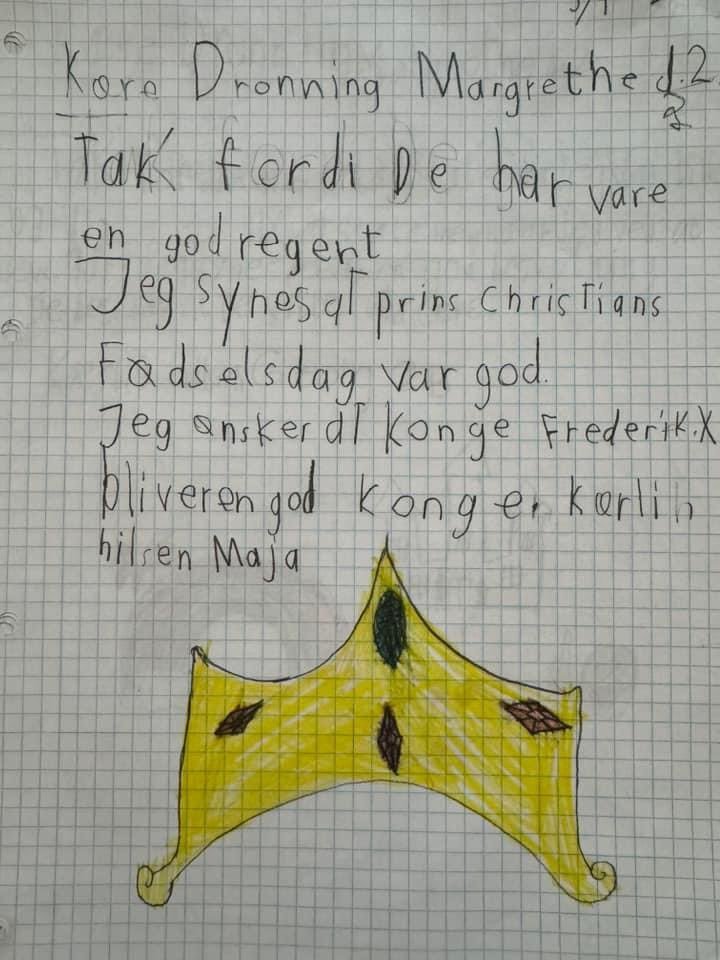 Kære Dronning Margrethe d.2
Tak fordi De har være
en god regent
Jeg synes at prins Christians
Fødselsdag var god.
Jeg ønsker at konge Frederik.X
bliver en god konge. kærlin
hilsen Maja